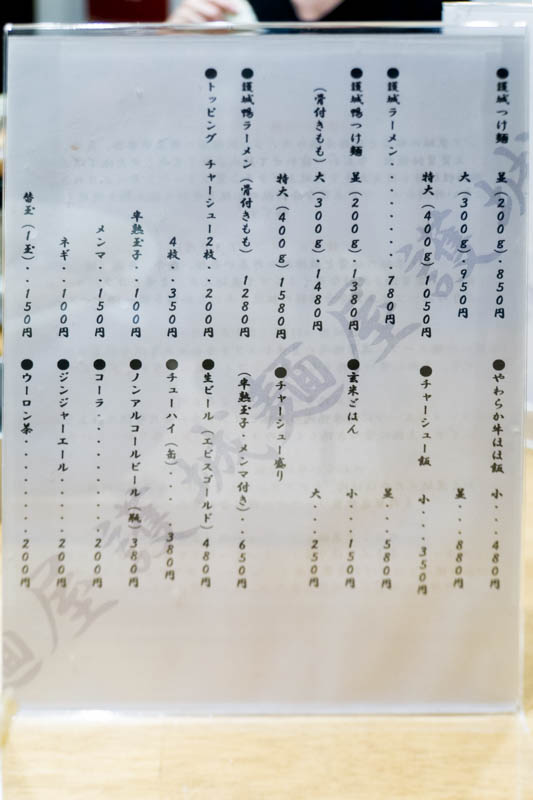 ●護城つけ麺 並(200g)・850円
大(300g)・950円
特大(400g)1050円
●護城ラーメン・・・・・・・・780円
●護城鴨つけ麺 並(200g)・1380円
(骨付きもも)大(300g)・1480円
特大(400g)1580円
●護城鴨ラーメン(骨付きもも) 1280円
●トッピング チャーシュー2枚・・200円
4枚・・350円
半熟玉子・・100円
メンマ・・150円
ネギ・・100円
替玉(1玉)・・150円
●やわらか牛ほほ飯 小・・・480円
並・・・880円
●チャーシュー飯 小・・・350円
並・・・580円
●玄米ごはん 小・・・150円
大・・・250円
●チャーシュー盛り
(半熟玉子・メンマ付き)・・650円
●生ビール(エビスゴールド)480円
●チューハイ(缶)・・・・380円
●ノンアルコールビール(瓶)380円
●コーラ・・・・・・・・・・・200円
●ジンジャーエール・・・・・・200円
●ウーロン茶・・・・・・・・・200円
麺屋 護城
麺屋 護城